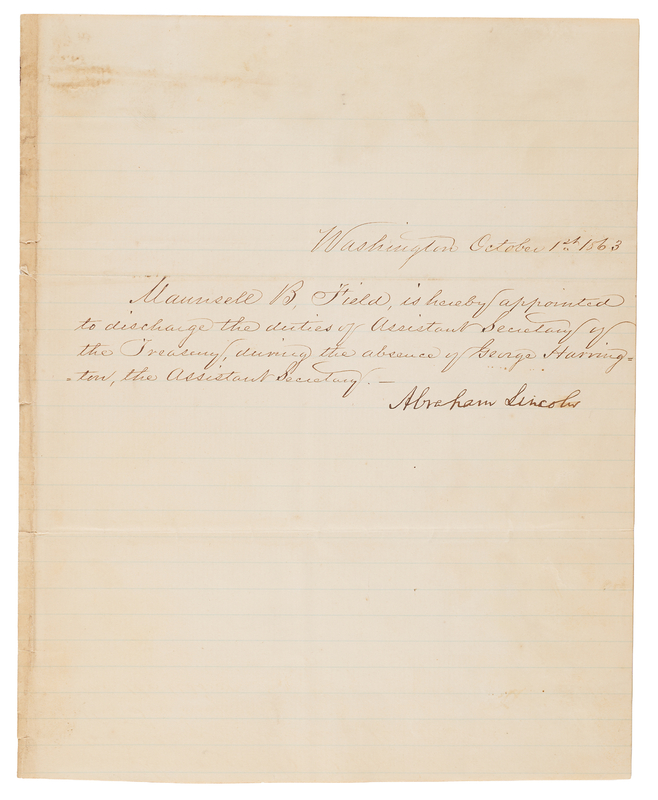 Washington October 1st. 1863
Maunsell B. Field, is hereby appointed
to discharge the duties of Assistant Secretary of
the Treasury, during the absence of George Harring=
=ton, the Assistant Secretary. —
Abraham Lincoln